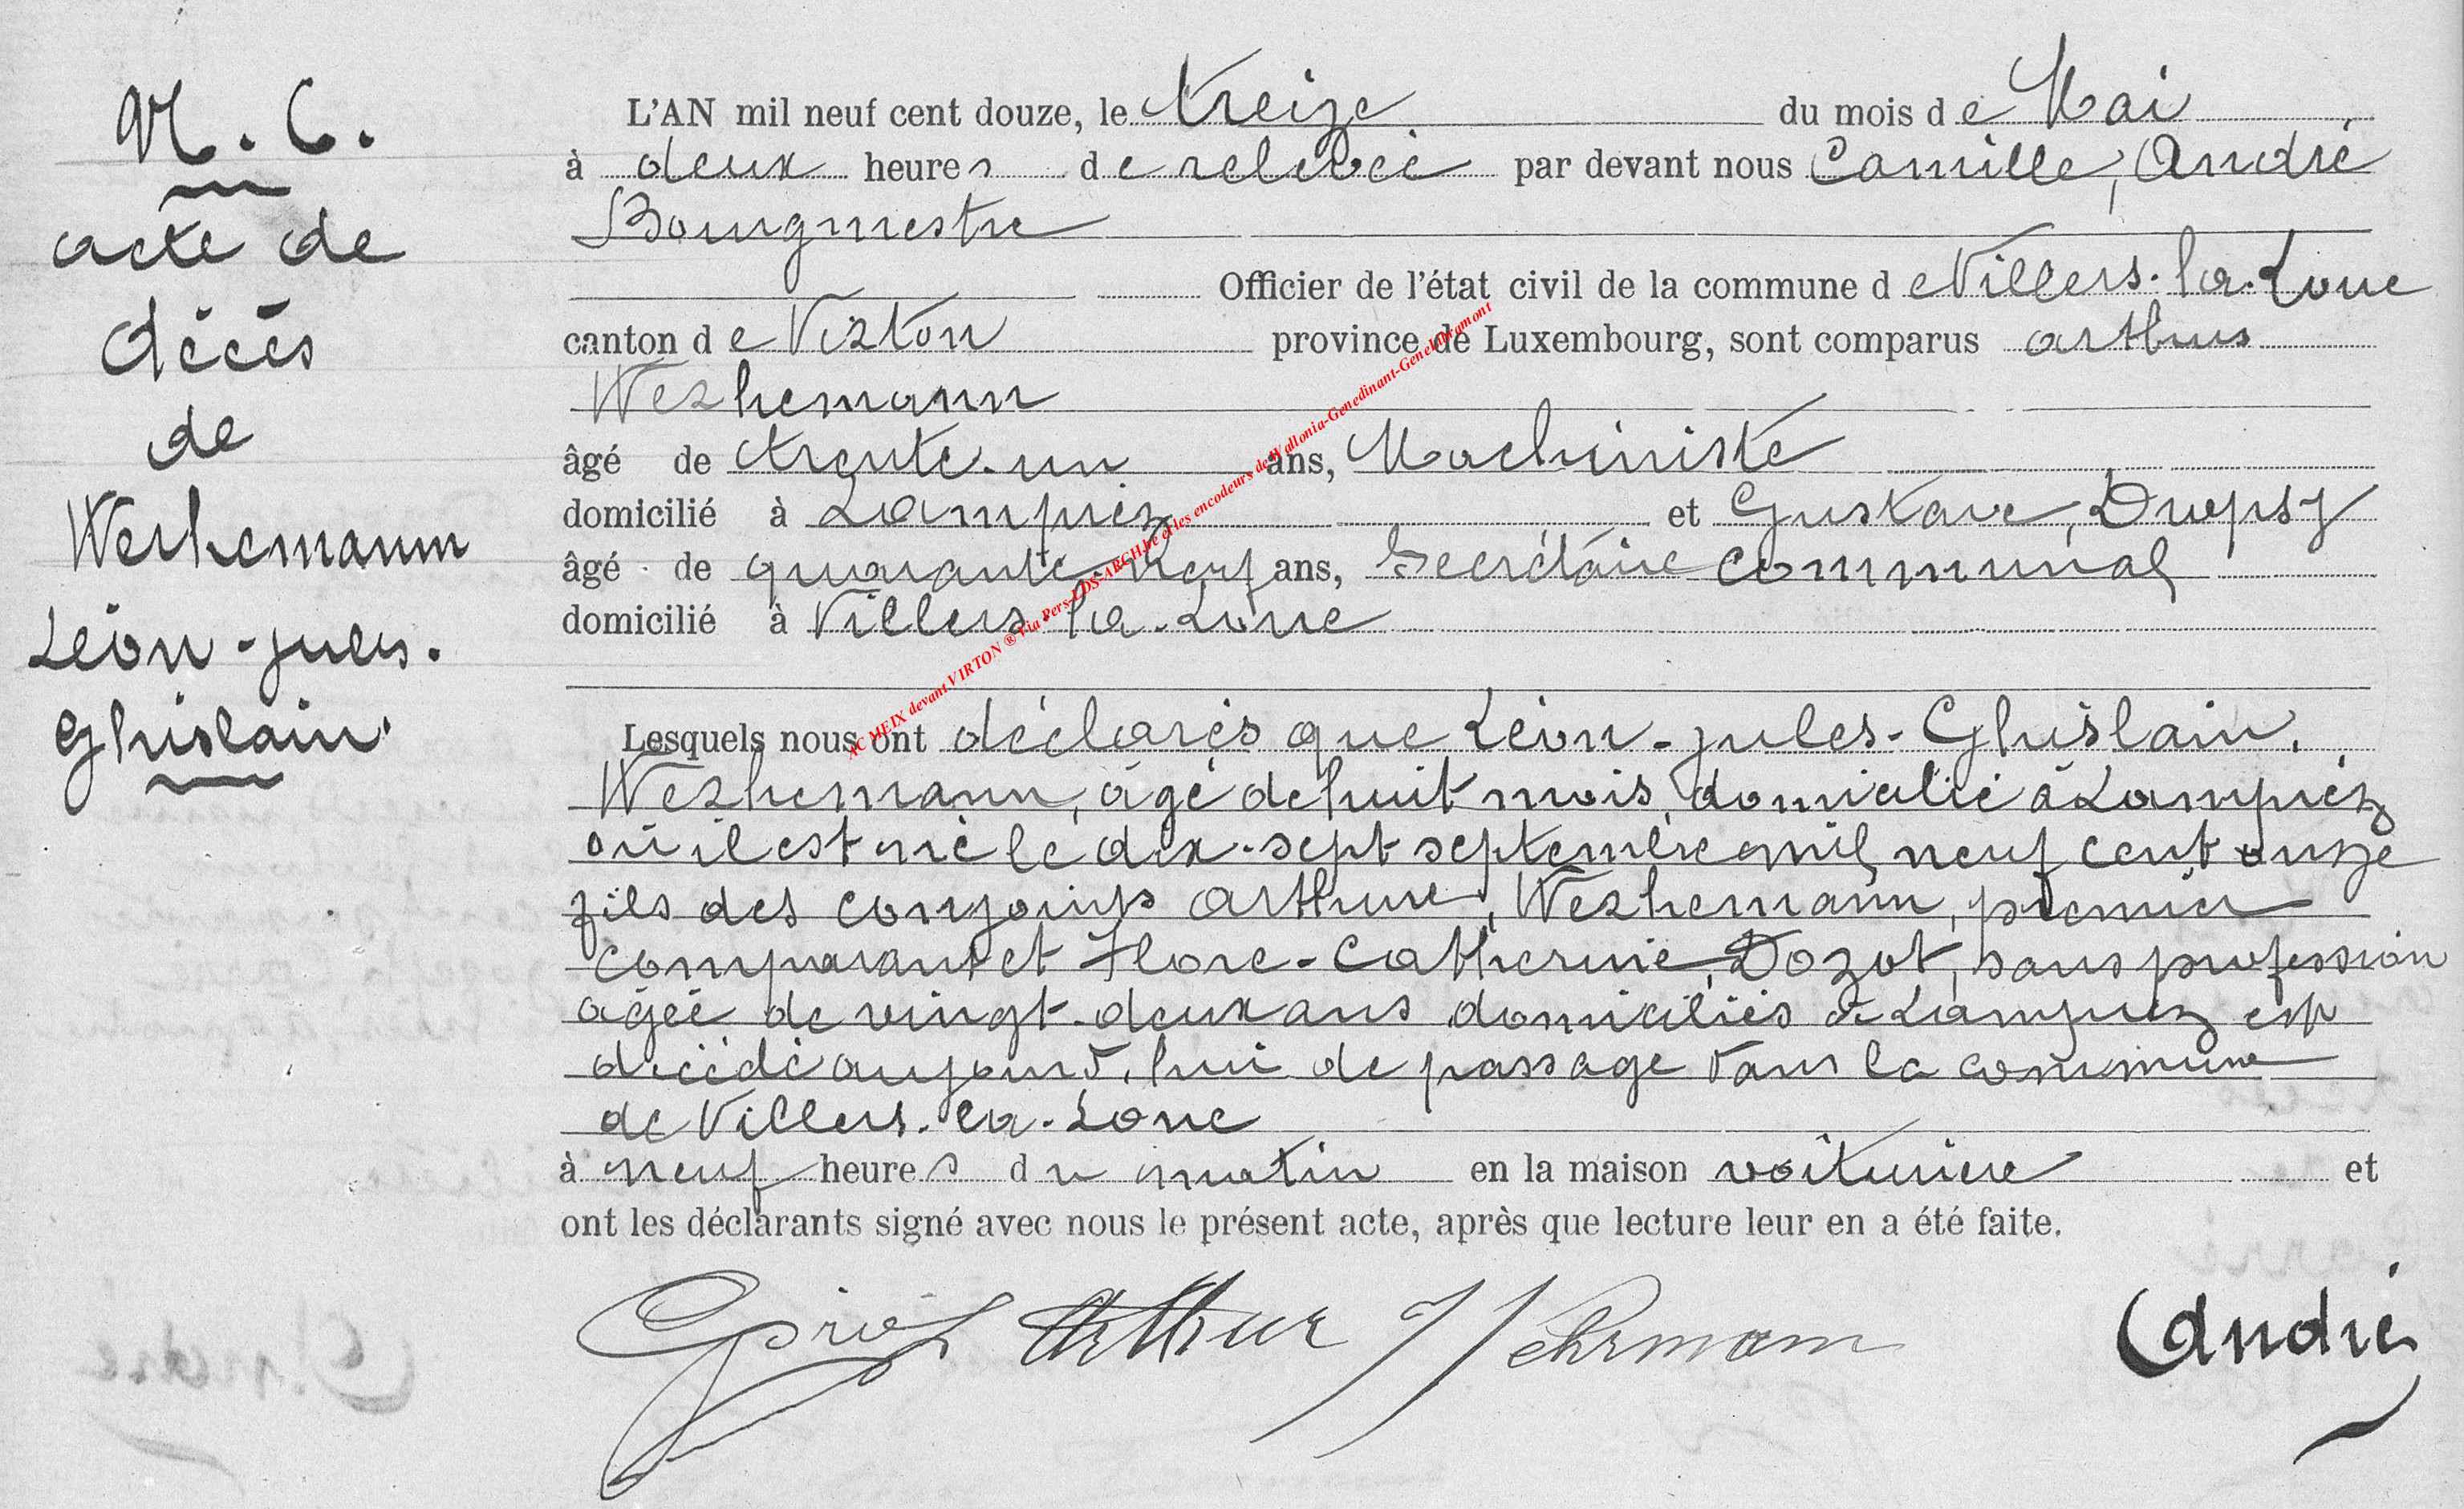 N. 6.
acte de
décès
de
Werhemann
Léon-jules.
Ghislain.
L'AN mil neuf cent douze, le treize du mois de Mai
à deux heures de relevée par devant nous Camille, André
Bourgmestre
Officier de l'état civil de la commune de Villers-la-Loue
canton de Virton province de Luxembourg, sont comparus arthur
Werhemann
âgé de trente-un ans, Machiniste
domicilié à Lampiez et Gustave,
âgé de quarante-neuf ans, Secrétaire communal
domicilié à Villers-la-Loue
Lesquels nous ont déclarés que Léon-jules-Ghislain,
Werhemann, âgé de huit mois, domicilié à Lampiez
où il est né le dix-sept septembre mil neuf cent onze
fils des conjoints arthure, Werhemann, premier
comparant et Flore-Catherine, Dozot, sans profession
âgée de vingt-deux ans domiciliés à Lampiez est
décédé aujourd'hui de passage dans la commune
de Villers-la-Loue
à neuf heures du matin en la maison voituriere et
ont les déclarants signé avec nous le présent acte, après que lecture leur en a été faite.
Arthur Wehrmann
André
AC MEIX devant VIRTON ® Via Pers-LDS-ARCH.be et les encodeurs de Wallonia-Genedinant-Genelibramont